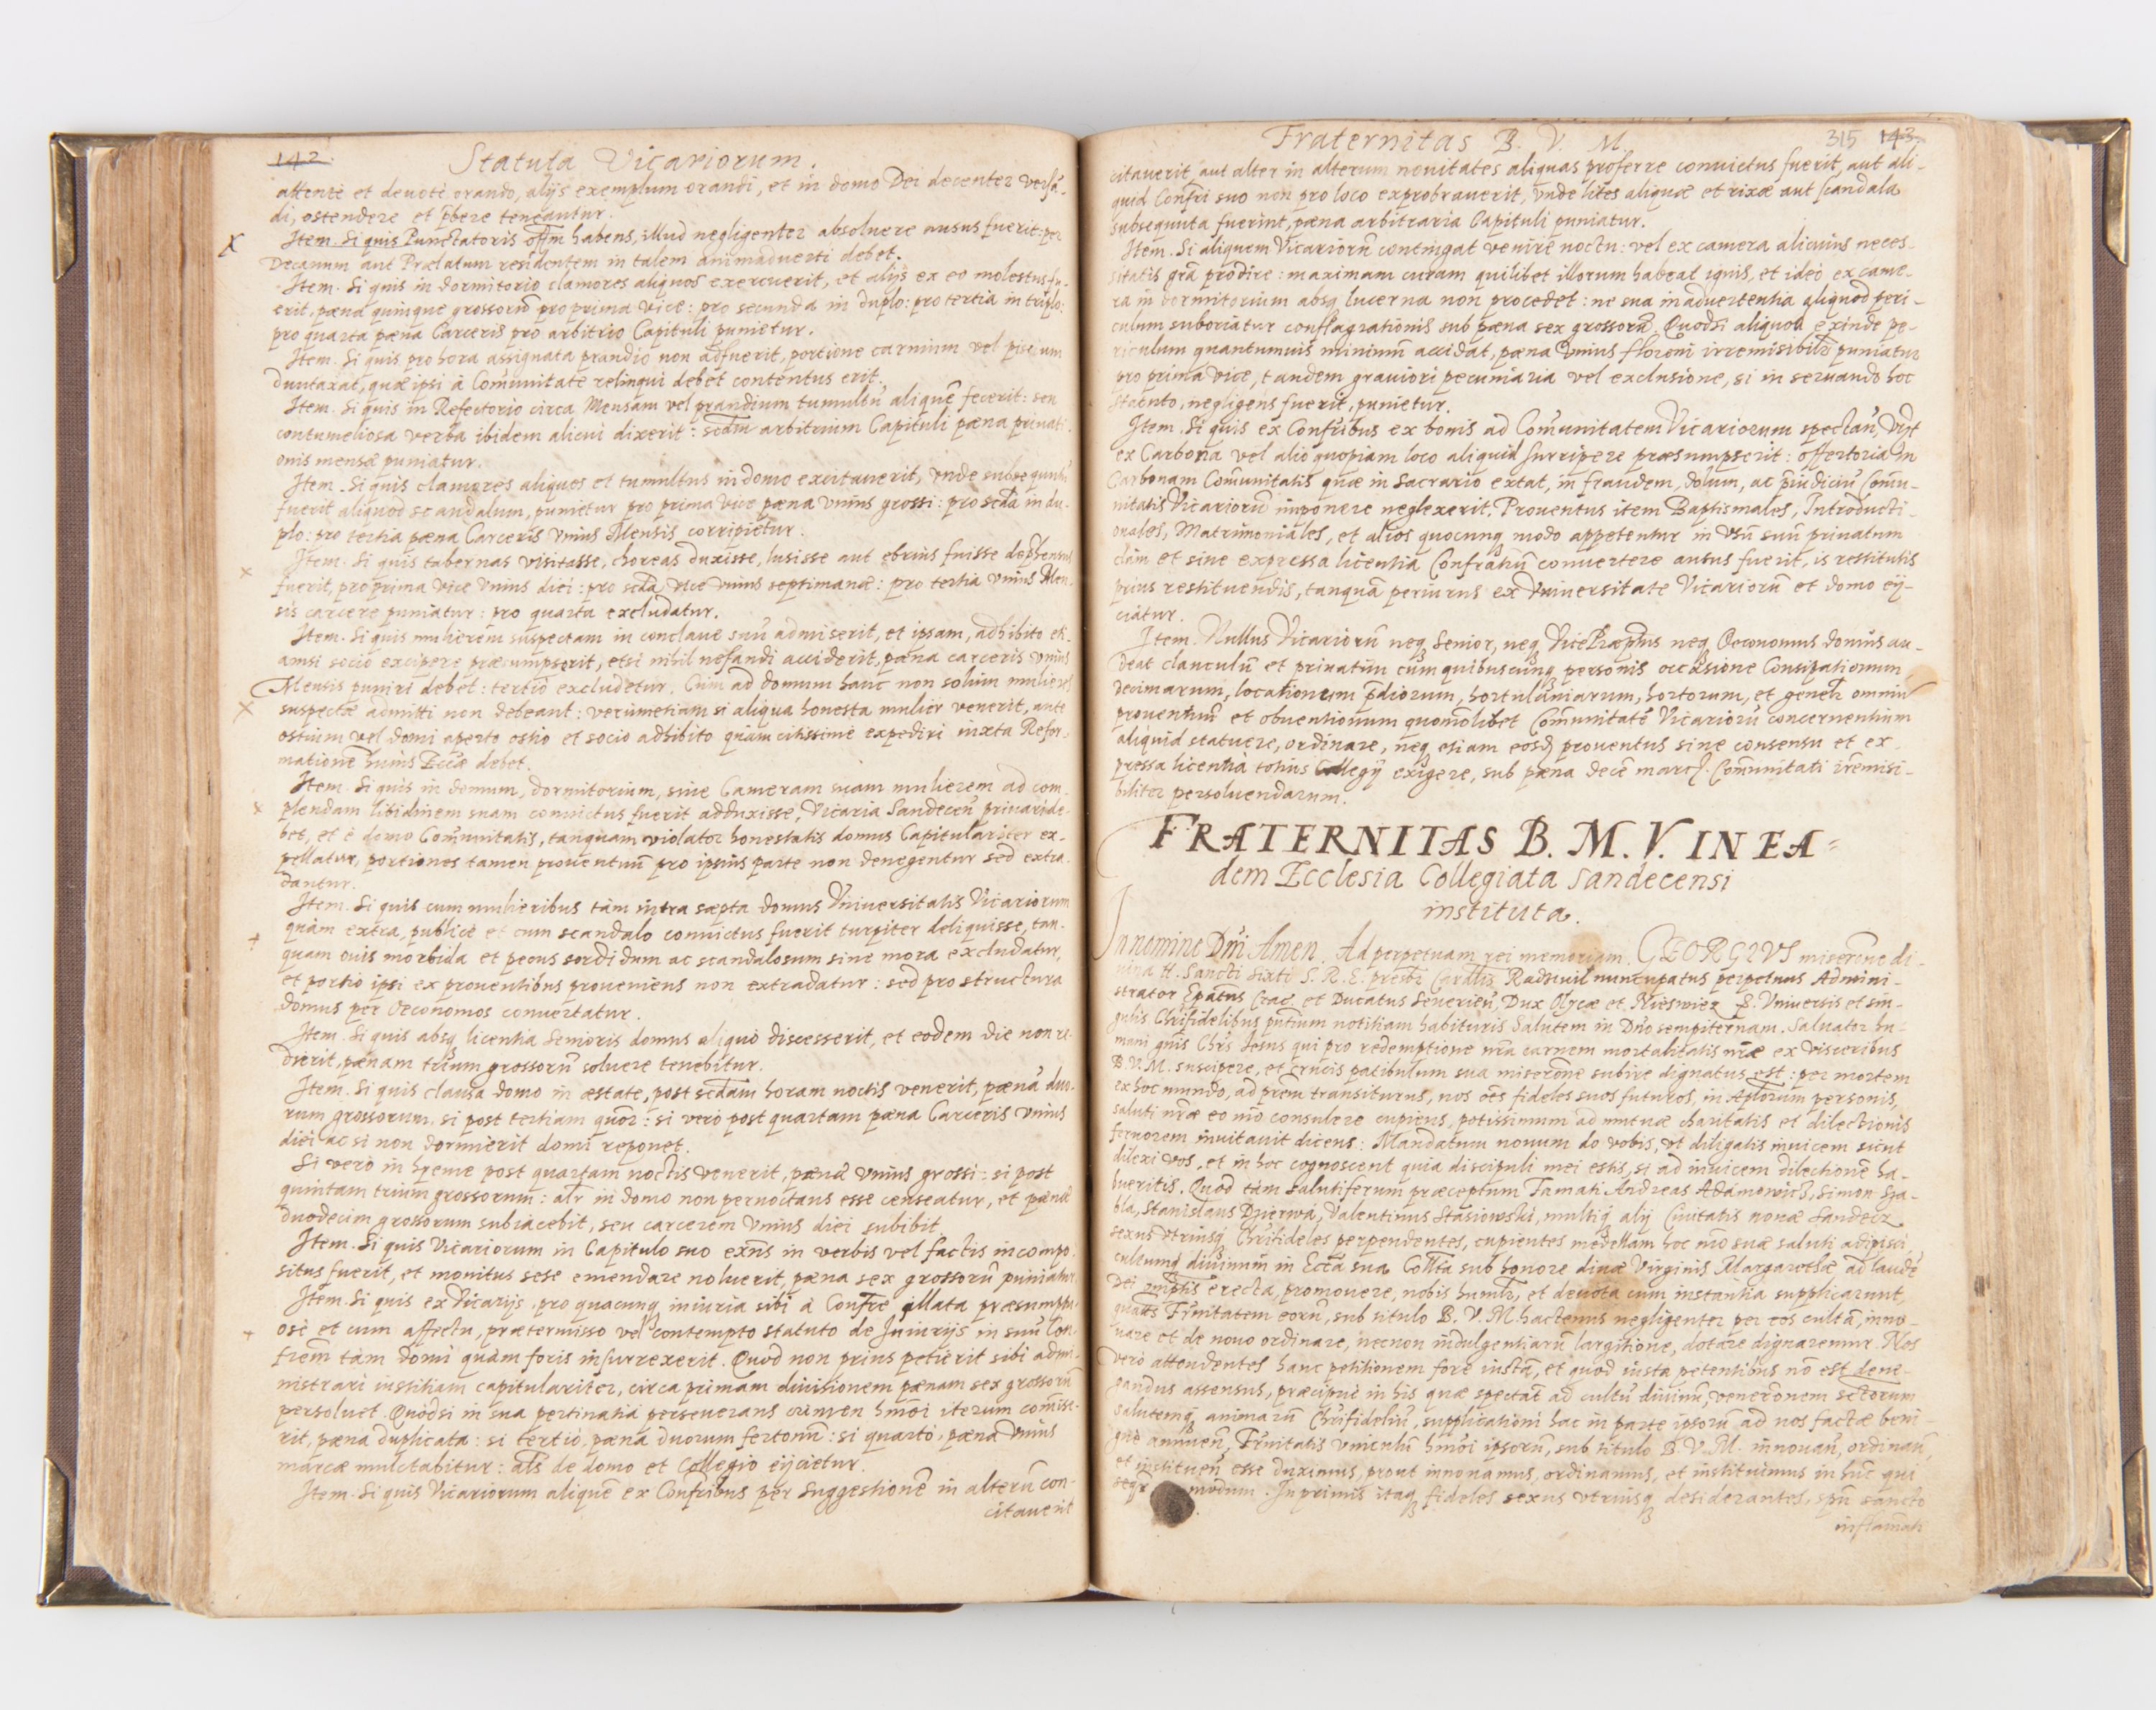 142
Statuta Vicariorum.
attentè et deuotè orando, alijs exemplum orandi, et in domo Dei decenter versã-
di, ostendere et p̃bere teneantur.
Item. Si quis Punctatoris offm̃ habens, illud negligenter absoluere ausus fuerit: per
Decanum aut Prælatum residentem in talem animaduerti debet.
Item. Si quis in dormitorio clamores aliquos exercuerit, et alijs ex eo molestus fu-
erit, pæna quinque grossorũ pro prima vice: pro secunda in duplo: pro tertia in triplo:
pro quarta pæna Carceris pro arbitrio Capituli punietur.
Item. Si quis pro hora assignata prandio non adfuerit, portione carnium vel piscium
duntaxat, quæ ipsi à Com̃unitate relinqui debet contentus erit.
Item. Si quis in Refectorio circa Mensam vel prandium tumultũ aliquẽ fecerit: seu
contumeliosa verba ibidem alicui dixerit: secdm̃ arbitrium Capituli pæna priuati-
onis mensæ puniatur.
Item. Si quis clamores aliquos et tumultus in domo excitauerit, vnde subsequutũ
fuerit aliquod scandalum, punietur pro prima vice pæna vnius grossi: pro secda in du-
plo: pro tertia pæna Carceris vnius Mensis corripietur.
Item. Si quis tabernas visitasse, choreas duxisse, lusisse aut ebrius fuisse dep̃hensus
fuerit, pro prima vice vnius diei: pro secda vice vnius septimanæ: pro tertia vnius Men-
sis carcere puniatur: pro quarta excludatur.
Item. Si quis mulierem suspectam in conclaue suũ admiserit, et ipsam, adhibito eti-
amsi socio excipere præsumpserit, etsi nihil nefandi acciderit, pæna carceris vnius
Mensis puniri debet: tertiò excludetur. Cum ad domum hanc non solùm mulieres
suspectæ admitti non debeant: verùmetiam si aliqua honesta mulier venerit, ante
ostium vel domi aperto ostio et socio adhibito quàm citissimè expediri iuxta Refor-
mationẽ huius Ecc̃æ debet.
Item. Si quis in domum, dormitorium, siue Cameram suam mulierem ad com-
plendam libidinem suam conuictus fuerit adduxisse, Vicaria Sandecen̄ priuari de-
bet, et è domo Com̃unitatis, tanquam violator honestatis domus Capitulariter ex-
pellatur, portiones tamen prouentuũ pro ipsius parte non denegentur sed extra-
dantur.
Item. Si quis cum mulieribus tàm intra sæpta domus Vniuersitatis Vicariorum
quàm extra, publicè et cum scandalo conuictus fuerit turpiter deliquisse, tan-
quam ouis morbida et pecus sordidum ac scandalosum sine mora excludatur,
et portio ipsi ex prouentibus proueniens non extradatur: sed pro structura
domus per Oeconomos conuertatur.
Item. Si quis absq licentia Senioris domus aliquò discesserit, et eodem die non re-
dierit, pænam trium grossorũ soluere tenebitur.
Item. Si quis clausa domo in æstate, post secdam horam noctis venerit, pæna duo-
rum grossorum, si post tertiam quor̃: si verò post quartam pæna Carceris vnius
diei ac si non dormierit domi reponet.
Si verò in hyeme post quartam noctis venerit, pænã vnius grossi: si post
quintam trium grossorum: alr̃ in domo non pernoctans esse censeatur, et pænæ
duodecim grossorum subiacebit, seu carcerem vnius diei subibit.
Item. Si quis Vicariorum in Capitulo suo exñs in verbis vel factis incompo-
situs fuerit, et monitus sese emendare noluerit, pæna sex grossorũ puniatur.
Item. Si quis ex Vicarijs, pro quacunq iniuria sibi à Confr̃e illata præsumptu-
osè et cum affectu, prætermisso vel contempto statuto de Iniurijs in suũ Con-
frem̃ tàm domi quàm foris insurrexerit. Quod non prius petierit sibi admi-
nistrari iustitiam capitulariter, circa primam diuisionem pænam sex grossorũ
persoluet. Quodsi in sua pertinatia perseuerans crimen hmõi iterum com̃ise-
rit, pæna duplicata: si tertiò, pæna duorum fertonũ: si quartò, pæna vnius
marcæ mulctabitur: als̃ de domo et Collegio eijcietur.
Item. Si quis Vicariorum aliquẽ ex Confr̃ibus per Suggestionẽ in alterũ con-
citauerit
Fraternitas B. V. M.
315 143
citauerit, aut alter in alterum nouitates aliquas proferre conuictus fuerit, aut ali-
quid Confr̃i suo non pro loco exprobrauerit, vnde lites aliquæ et rixæ aut scandala
subsequuta fuerint, pæna arbitraria Capituli puniatur.
Item. Si aliquem Vicariorũ contingat venire noctu: vel ex camera alicuius neces-
sitatis grã prodire: maximam curam quilibet illorum habeat ignis, et ideò ex came-
ra in dormitorium absq lucerna non procedet: ne sua inaduertentia aliquod peri-
culum suboriatur conflagrationis sub pæna sex grossorũ. Quodsi aliquod exinde pe-
riculum quantumuis minimũ accidat, pæna vnius floreni irremisibilr̃ puniatur
pro prima vice, tandem grauiori pecuniaria vel exclusione, si in seruando hoc
statuto, negligens fuerit, punietur.
Item. Si quis ex Confr̃ibus ex bonis ad Com̃unitatem Vicariorum spectan̄, Vt
ex Carbona vel alio quopiam loco aliquid surripere præsumpserit: offertoria in
Carbonam Com̃unitatis quæ in Sacrario extat, in fraudem, dolum, ac p̃iudiciũ Com̃u-
nitatis Vicariorũ imponere neglexerit. Prouentus item Baptismales, Introducti-
orales, Matrimoniales, et alios quocunq modo appetentur in vsũ suũ priuatum
clàm et sine expressa licentia Confratrũ conuertere ausus fuerit, is restitutis
prius restituendis, tanquã periurus ex Vniuersitate Vicariorũ et domo eij-
ciatur.
Item. Nullus Vicariorũ neq Senior, neq VicePræptus neq Oeconomus domus au-
deat clanculũ et priuatim cum quibuscunq personis occasione Consipationum
decimarum, locationum p̃diorum, hortulaniarum, hortorum, et genelr̃ omniũ
prouentuũ et obuentionum quom̃olibet Com̃unitatẽ Vicariorũ concernentium
aliquid statuere, ordinare, neq etiam eosd̃ prouentus sine consensu et ex-
pressa licentia totius Collegij exigere, sub pæna decẽ marc. Com̃unitati irremisi-
biliter persoluendarum.
FRATERNITAS B. M. V. IN EA=
dem Ecclesia Collegiata Sandecensi
instituta.
In nomine Dñi Amen. Ad perpetuam rei memoriam. GEORGIVS miserõne di-
uina tt. Sancti Sixti S. R. E. presbr̃ Cardlis Radziuil nuncupatus perpetuus Admini-
strator Ep̃atus Crac̃ et Ducatus Seuerien̄, Dux Olycæ et Nieswiez &. Vniuersis et sin-
gulis Chr̃ifidelibus pñtium notitiam habituris Salutem in Dño sempiternam. Saluator hu-
mani gñis Chr̃s Iesus qui pro redemptione nr̃a carnem mortalitatis nr̃æ ex visceribus
B. V. M. suscipere, et crucis patibulum sua miserõne subire dignatus est: per mortem
ex hoc mundo, ad pr̃em transiturus, nos oẽs fideles suos futuros, in Apl̃orum personis,
saluti nr̃æ eo mõ consulere cupiens, potissimum ad mutuæ charitatis et dilectionis
feruorem inuitauit dicens: Mandatum nouum do vobis, vt diligatis inuicem sicut
dilexi vos, et in hoc cognoscent quia discipuli mei estis, si ad inuicem dilectionẽ ha-
bueritis. Quod tàm salutiferum præceptum Famati Andreas Adamowicz, Simon Sza-
bla, Stanislaus Dzierwa, Valentinus Stasiowski, multiq alij Ciuitatis nouæ Sandecz
sexus vtriusq Chr̃ifideles perpendentes, cupientes medellam hoc mõ suæ saluti adipisci
cultumq diuinum in Ecc̃a sua Coll̃ta sub honore diuæ Virginis Margarethæ ad laudẽ
Dei erecta, promouere, nobis humilr̃, et deuota cum instantia supplicarunt,
quatẽs Fr̃nitatem eorũ, sub titulo B. V. M. hactenus negligenter per eos cultã, inno-
uare et de nouo ordinare, necnon indulgentiarũ largitione, dotare dignaremur. Nos
verò attendentes hanc petitionem fore iustã, et quod iusta petentibus nõ est dene-
gandus assensus, præcipuè in his quæ spectãt ad cultũ diuinũ, venerõnem sctorum
salutemq animarũ Chr̃ifideliũ, supplicationi hac in parte ipsorũ ad nos factæ beni-
gnè annuen̄, Fr̃nitatis vniculũ hmõi ipsorũ, sub titulo B. V. M. innouan̄, ordinan̄,
et instituen̄ esse duximus, prout innouamus, ordinamus, et instituimus in hũc qui
seqr̃ modum. Inprimis itaq fideles sexus vtriusq desiderantes, spũ sancto
inflam̃ati